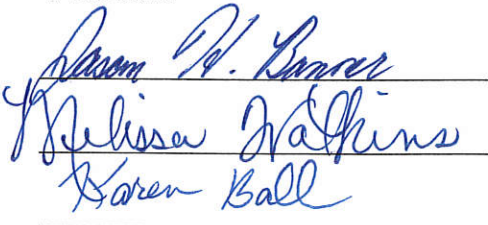 Jason H. Banner
Melissa Watkins
Karen Ball